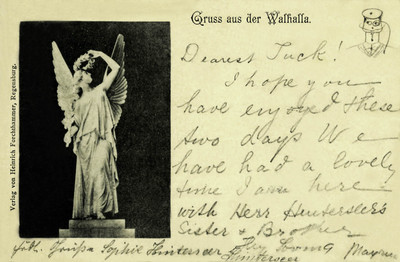 Gruss aus der Walhalla.
Verlag von Heinrich Forchhammer, Regensburg.
Dearest Tuck!
I hope you
have enjoyed these
two days We
have had a lovely
time I am here
with Herr
Sister & Brother
Sophie Hinterseer Loving
Hinterseer